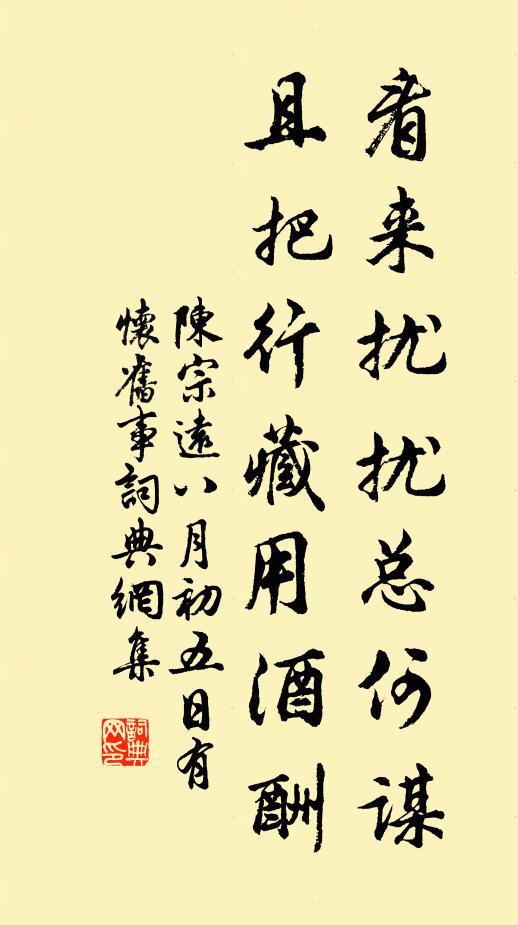 看来扰扰总何谋
且把行藏用酒酬
陳宗遠八月初五日有
懷舊事詞典網集
詞典
网印